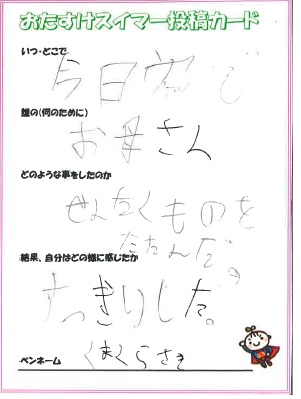 おたすけスイマー投稿カード
いつ・どこで
今日家で
誰の(何のために)
お母さん
どのような事をしたのか
せんたくものを
たたんだ。
結果、自分はどの様に感じたか
すっきりした。
ペンネーム